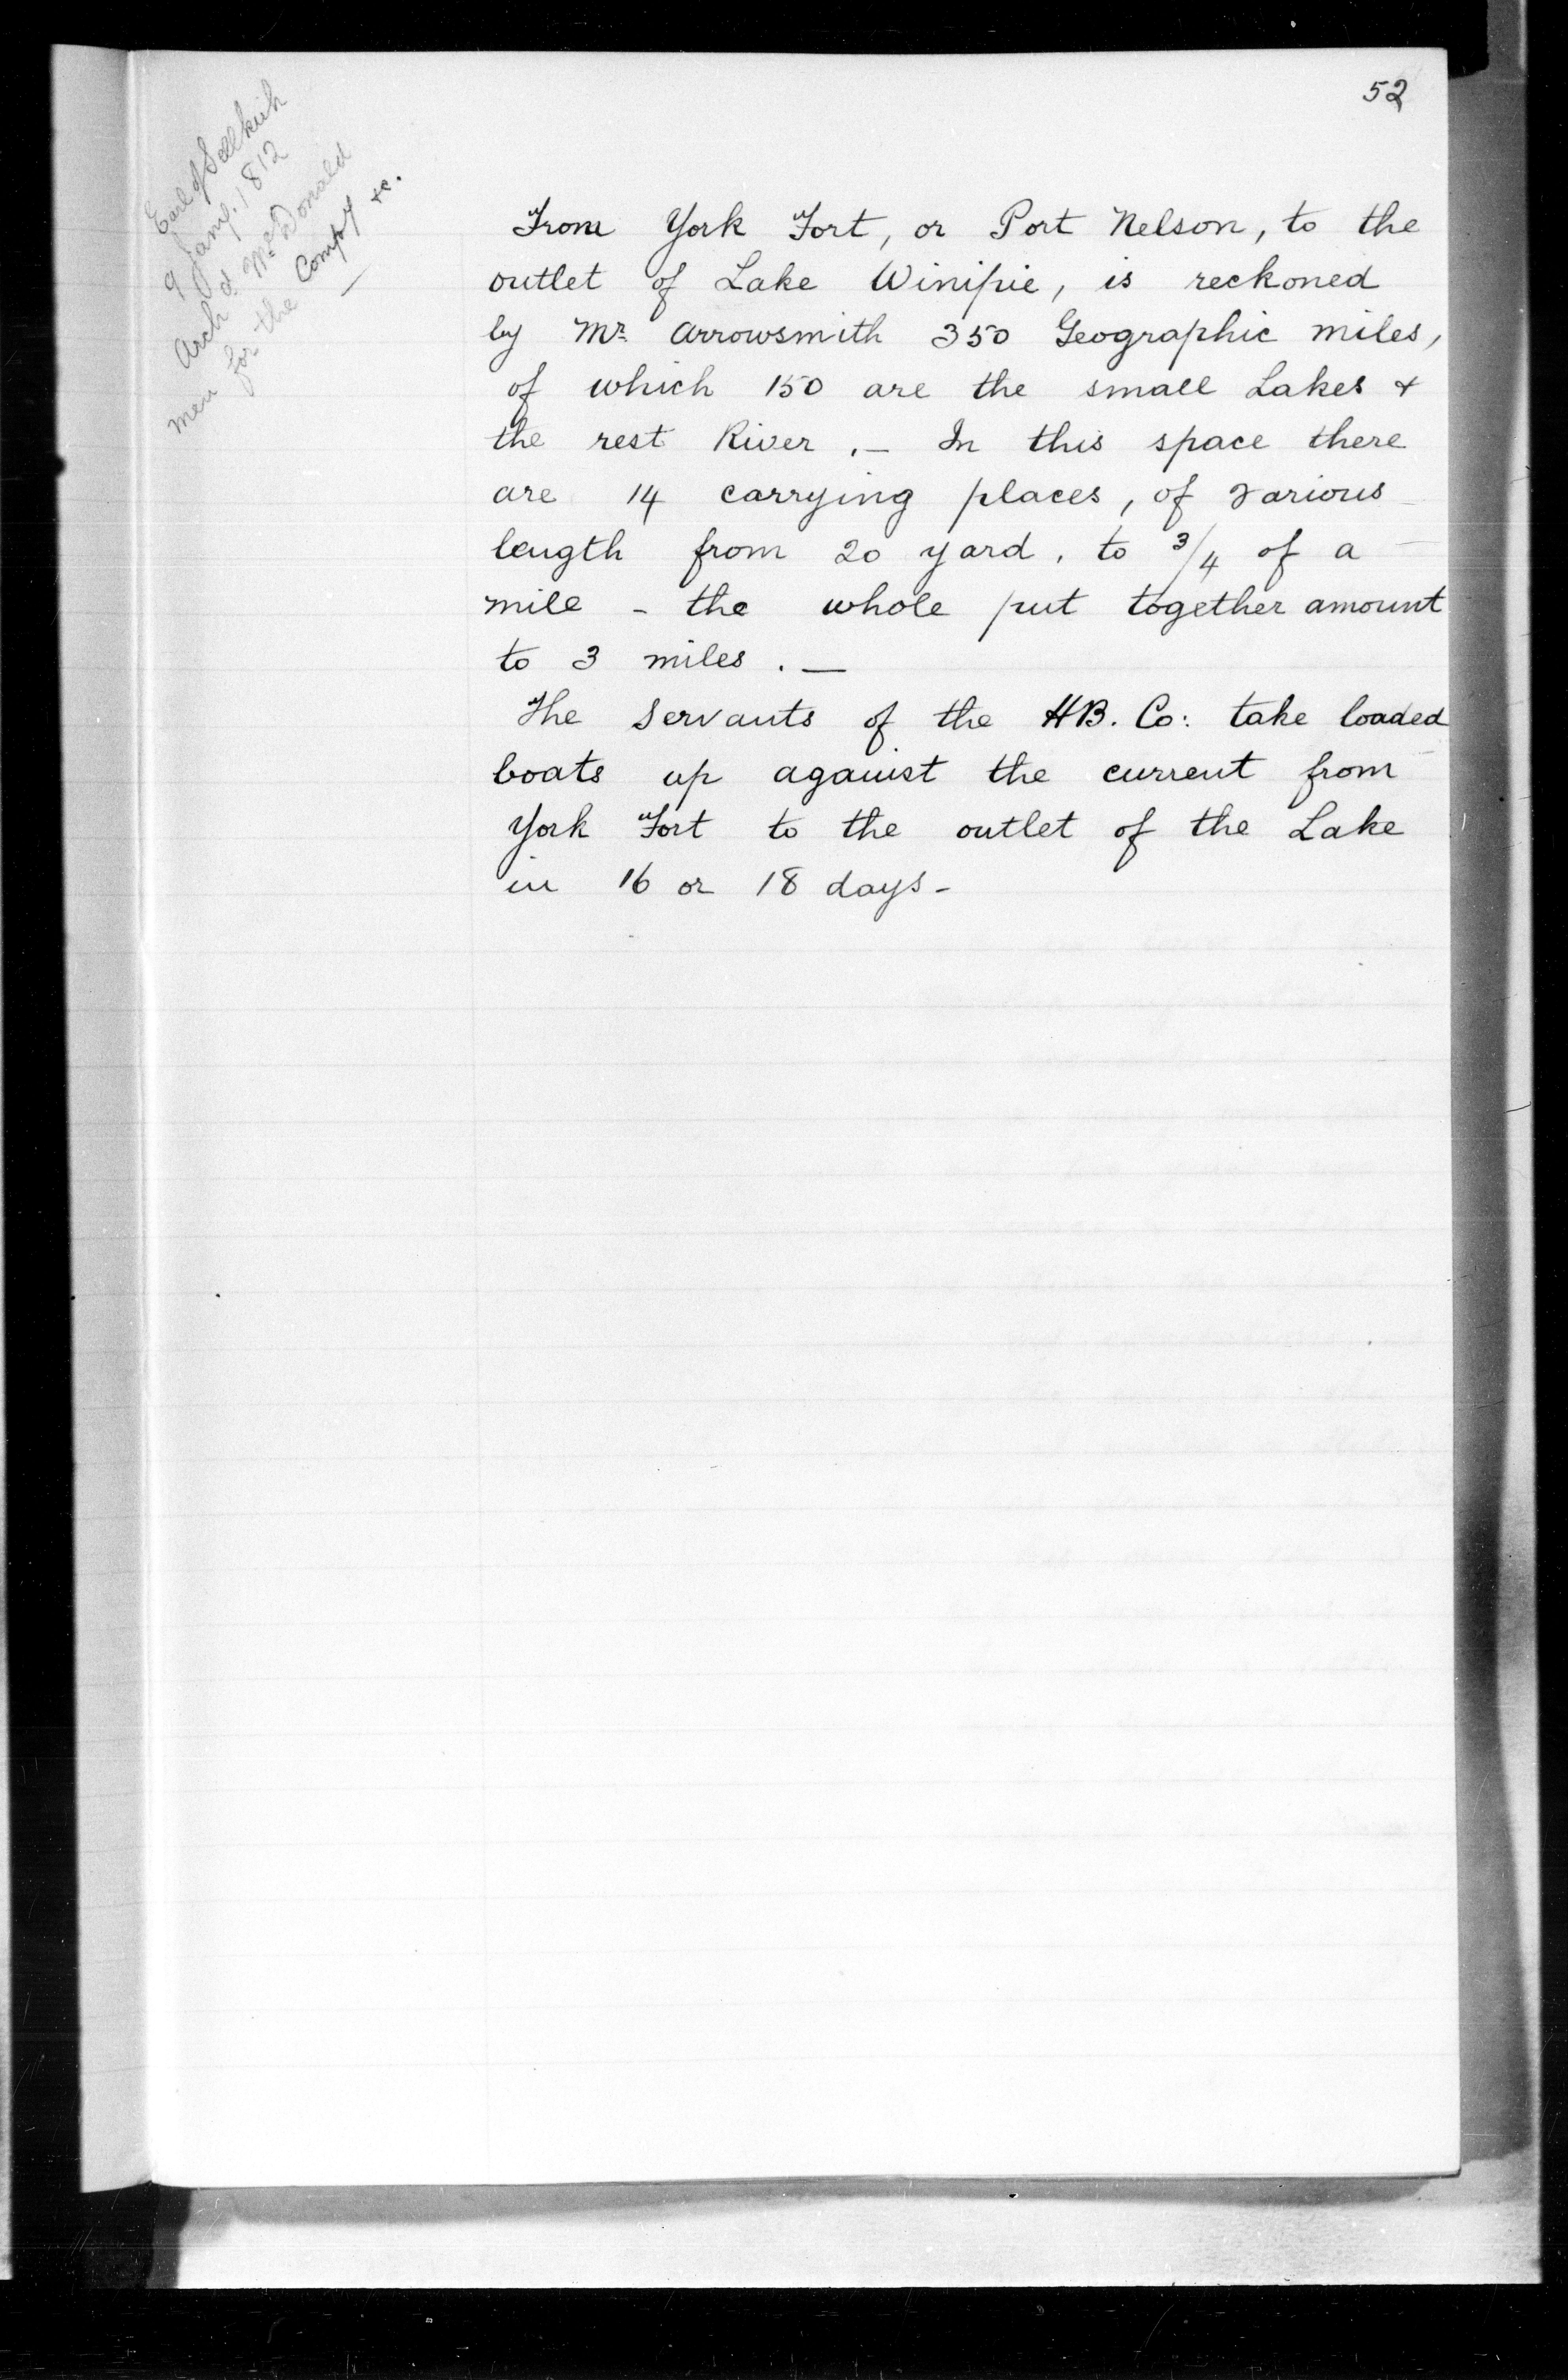 52
Earl of Selkirk
9 Jany. 1812
Archd. McDonald
men for the Compy &c.
From York Fort, or Port Nelson, to the
outlet of Lake Winipie, is reckoned
by Mr. Arrowsmith 350 Geographic miles,
of which 150 are the small Lakes &
the rest River. — In this space there
are 14 carrying places, of various
length from 20 yard, to 3/4 of a
mile - the whole put together amount
to 3 miles. —
The Servants of the HB. Co: take loaded
boats up against the current from
York Fort to the outlet of the Lake
in 16 or 18 days -